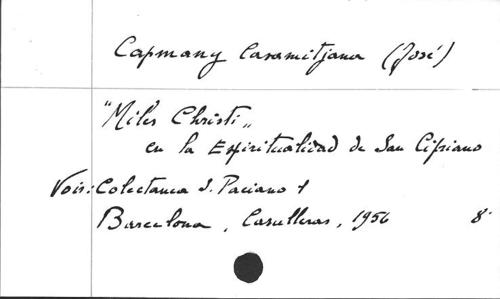 Capmany Casamitjana (José)
"Miles Christi"
en la Espiritualidad de San Cipriano
Voir: Colectanea S. Paciano 1
Barcelona, Casulleras, 1956 8°